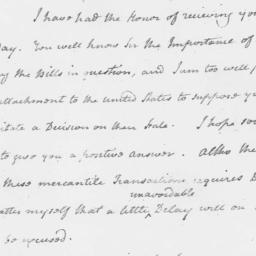 I have had the Honor of recieving you
day. You well know Sir the Importance of
the Bills in question, and I am too well
attachment to the united States to suppose
itate a Decision on their Fate. I hope soo
to give you a positive answer. Altho the
these mercantile Transactions requires
unavoidable
atter myself that a little Delay will on
so excused.